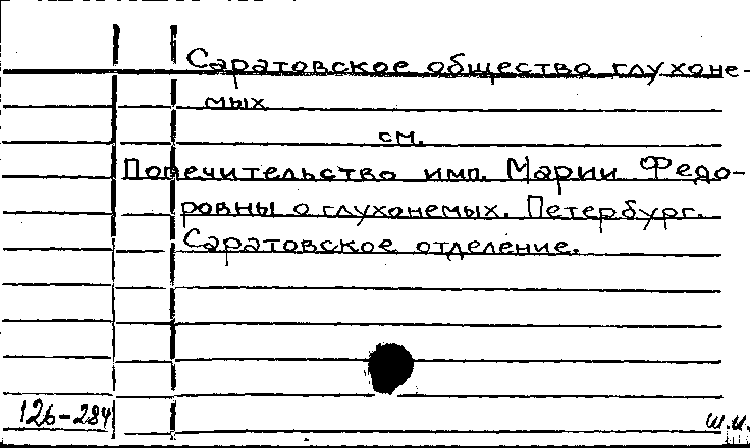 Саратовское общество глухоне-
мых
см.
Попечительство имп. Марии Федо-
ровны о глухонемых. Петербург.
Саратовское отделение.
126-284
Ш.И.